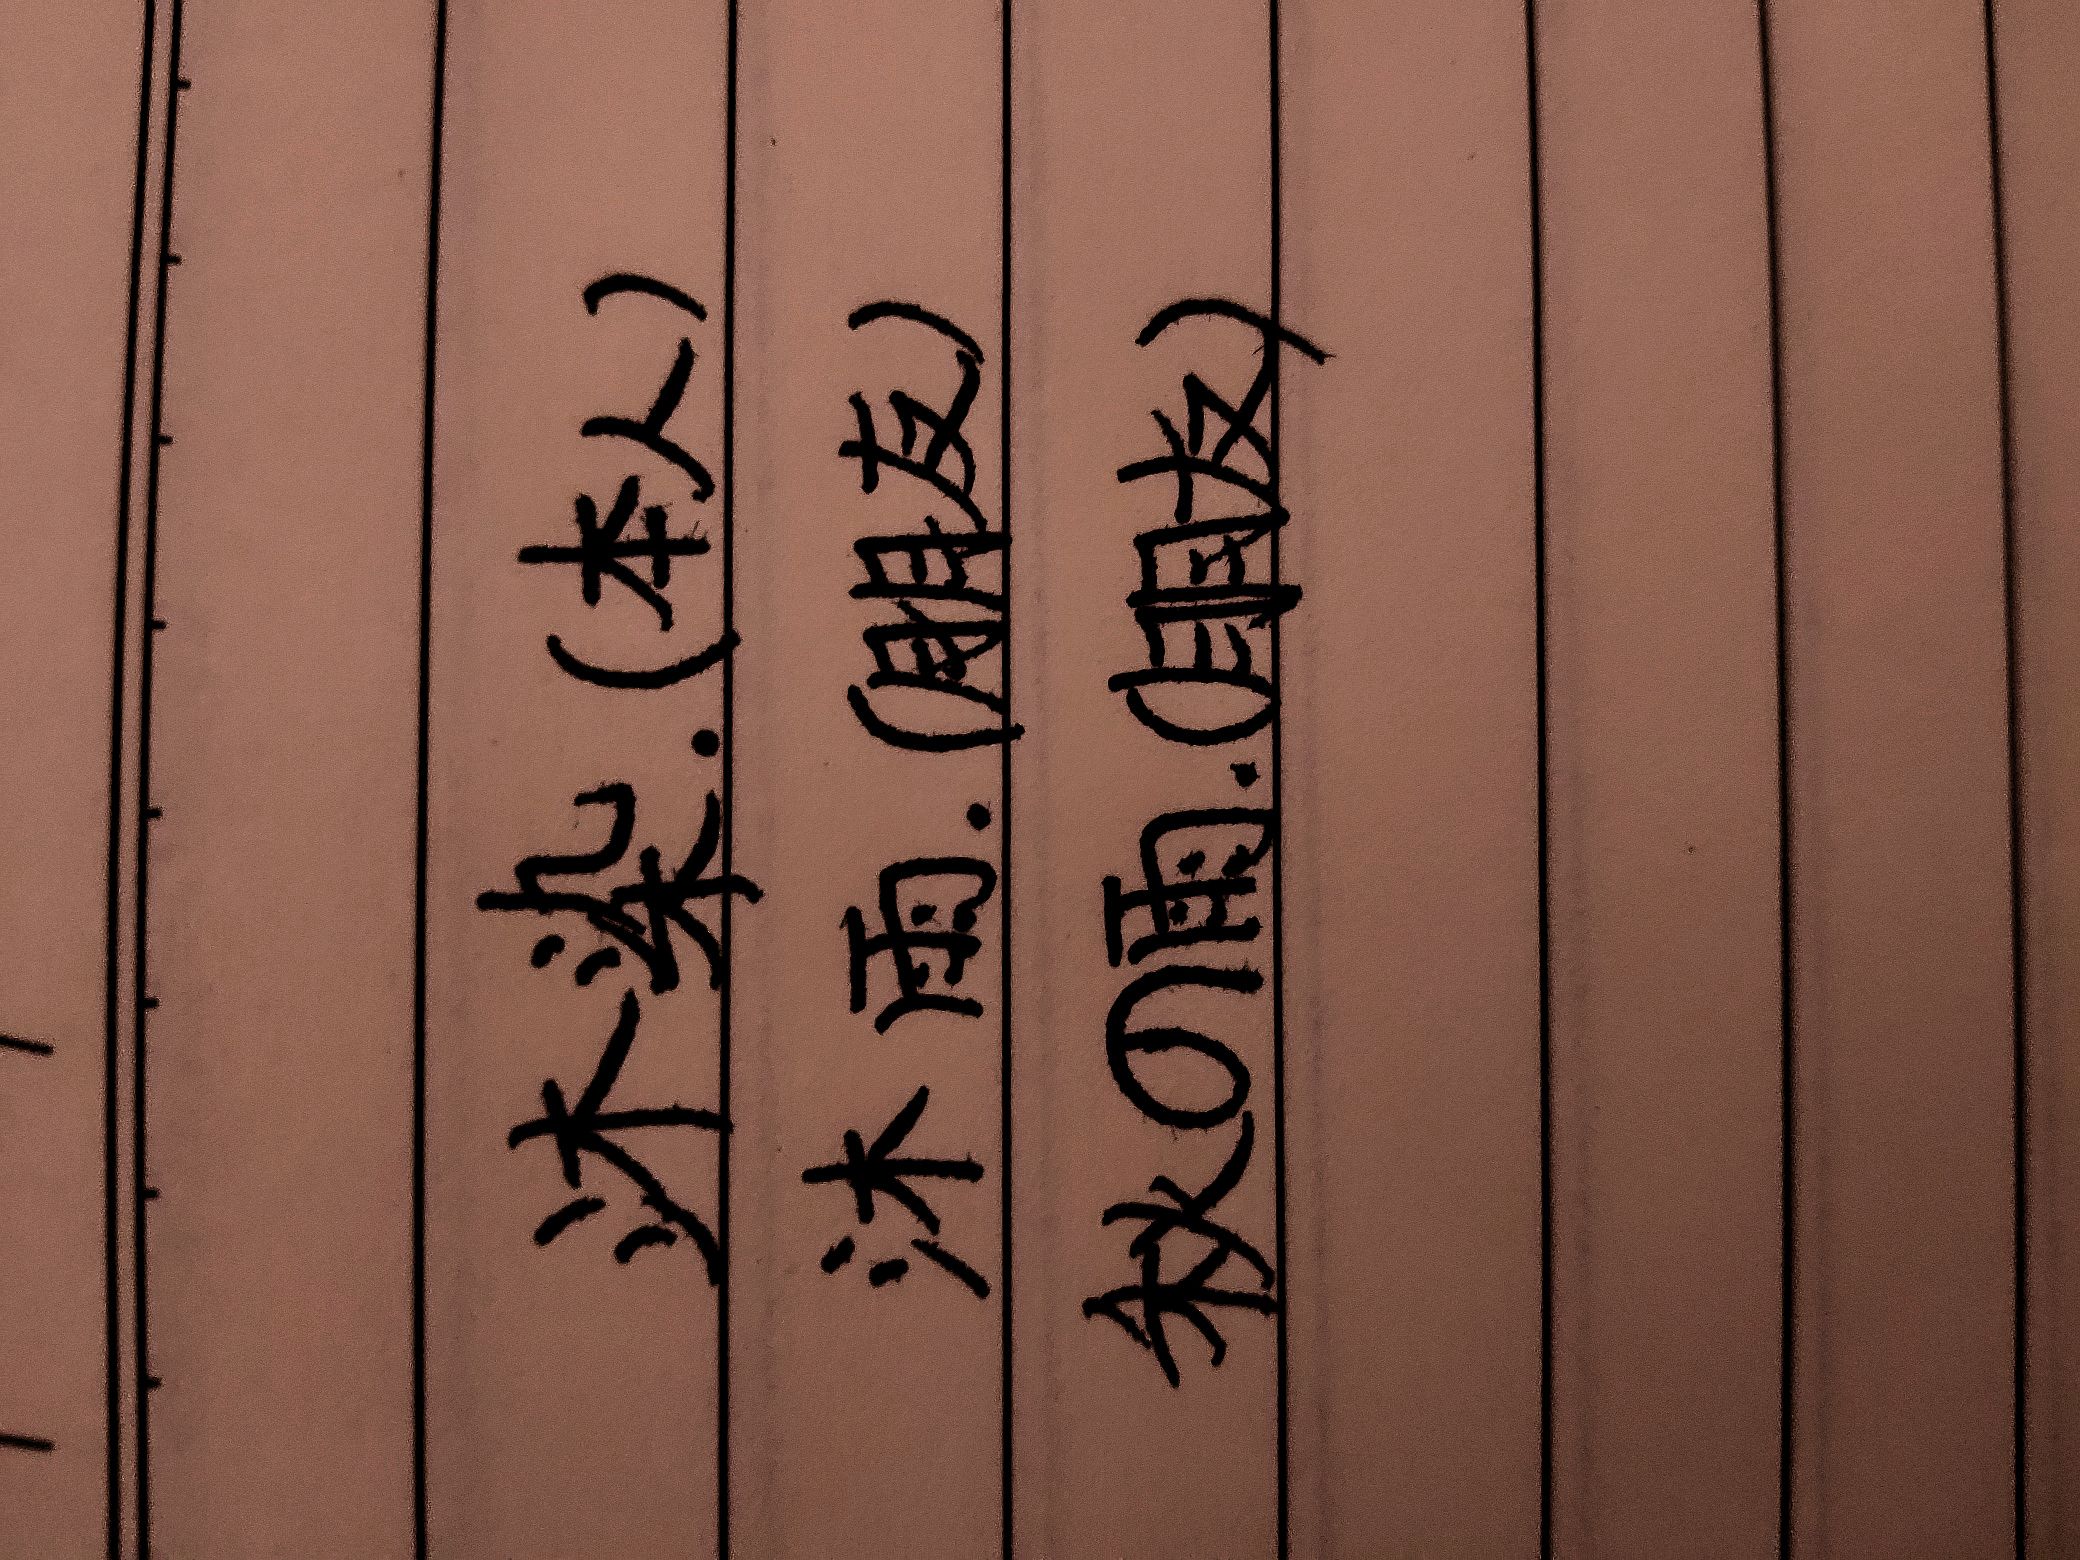 沐染.(本人)
沐雨.(朋友)
秋の雨.(朋友)